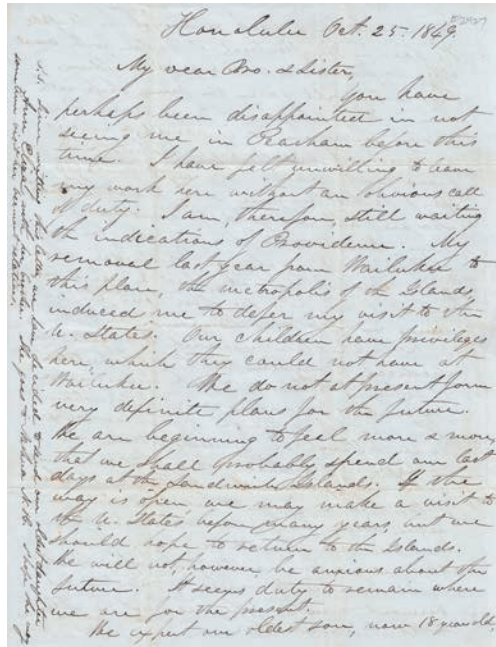 Honolulu Oct. 25. 1849.
My dear Bro. & Sister,
You have
perhaps been disappointed in not
seeing me in Peacham before this
time. I have felt unwilling to leave
my work here without an obvious call
of duty. I am, therefore, still waiting
the indications of Providence. My
removal last year from Wailuku to
this place, the metropolis of the Islands,
induced me to defer my visit to the
U. States. Our children have privileges
here, which they could not have at
Wailuku. We do not at present form
very definite plans for the future.
We are beginning to feel more & more
that we shall probably spend our last
days at the Sandwich Islands. If the
way is open we may make a visit to
the U. States before many years, but we
should hope to return to the Islands.
We will not, however, be anxious about the
future. It seems duty to remain where
we are for the present.
We expect our oldest son, now 18 years old,
P.S. Since writing this letter we have decided to send our oldest daughter
Ann Eliza with her brother. She goes to